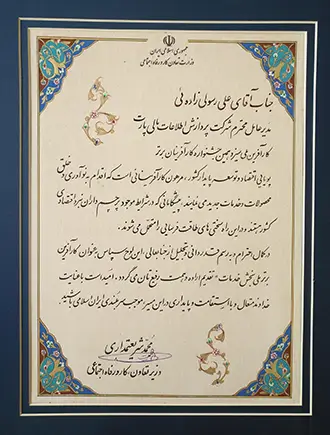 جمهوری اسلامی ایران
وزارت تعاون کار و رفاه اجتماعی
جناب آقای علی رسولی زاده ئی
مدیر عامل محترم شرکت پردازش اطلاعات مالی پارت
کارآفرین ملی سیزدهمین جشنواره کارآفرینان برتر
پویایی اقتصاد و توسعه پایدار کشور، مرهون کارآفرینانی است که اقدام به نوآوری و خلق
محصولات و خدمات جدید می نمایند، پیشگامانی که در شرایط موجود پرچم داران نبرد اقتصادی
کشور هستند و در این راه سختی های طاقت فرسایی را متحمل می شوند.
در کمال احترام و به رسم قدردانی و تجلیل از جنابعالی، این لوح سپاس به عنوان کارآفرین
برتر ملی بخش خدمات، تقدیم اراده و همت رفیع تان می گردد. امید است با عنایت
خداوند متعال و با استقامت و پایداری در این مسیر موجب سربلندی ایران اسلامی باشید.
محمد شریعتمداری
وزیر تعاون، کار و رفاه اجتماعی